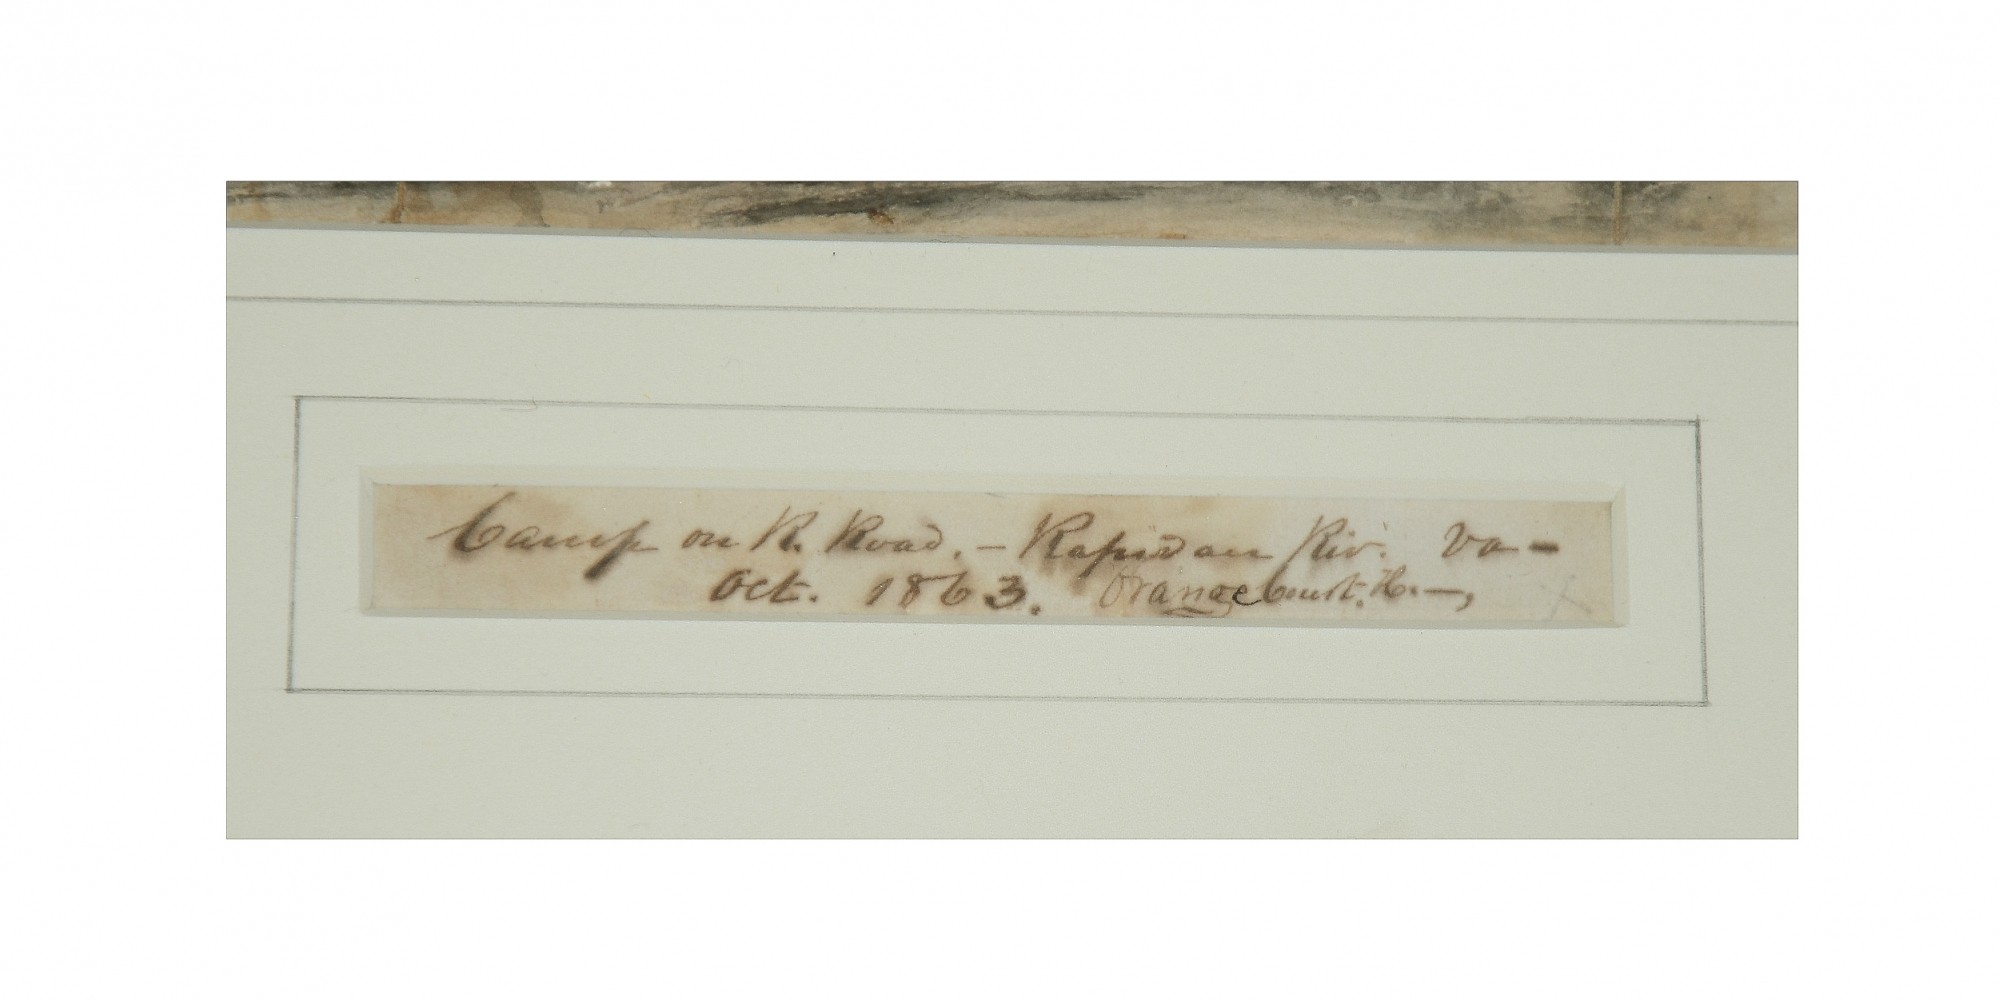 Camp on R. Road. – Rapidan Riv. Va –
Oct. 1863. Orange Court. H. –,